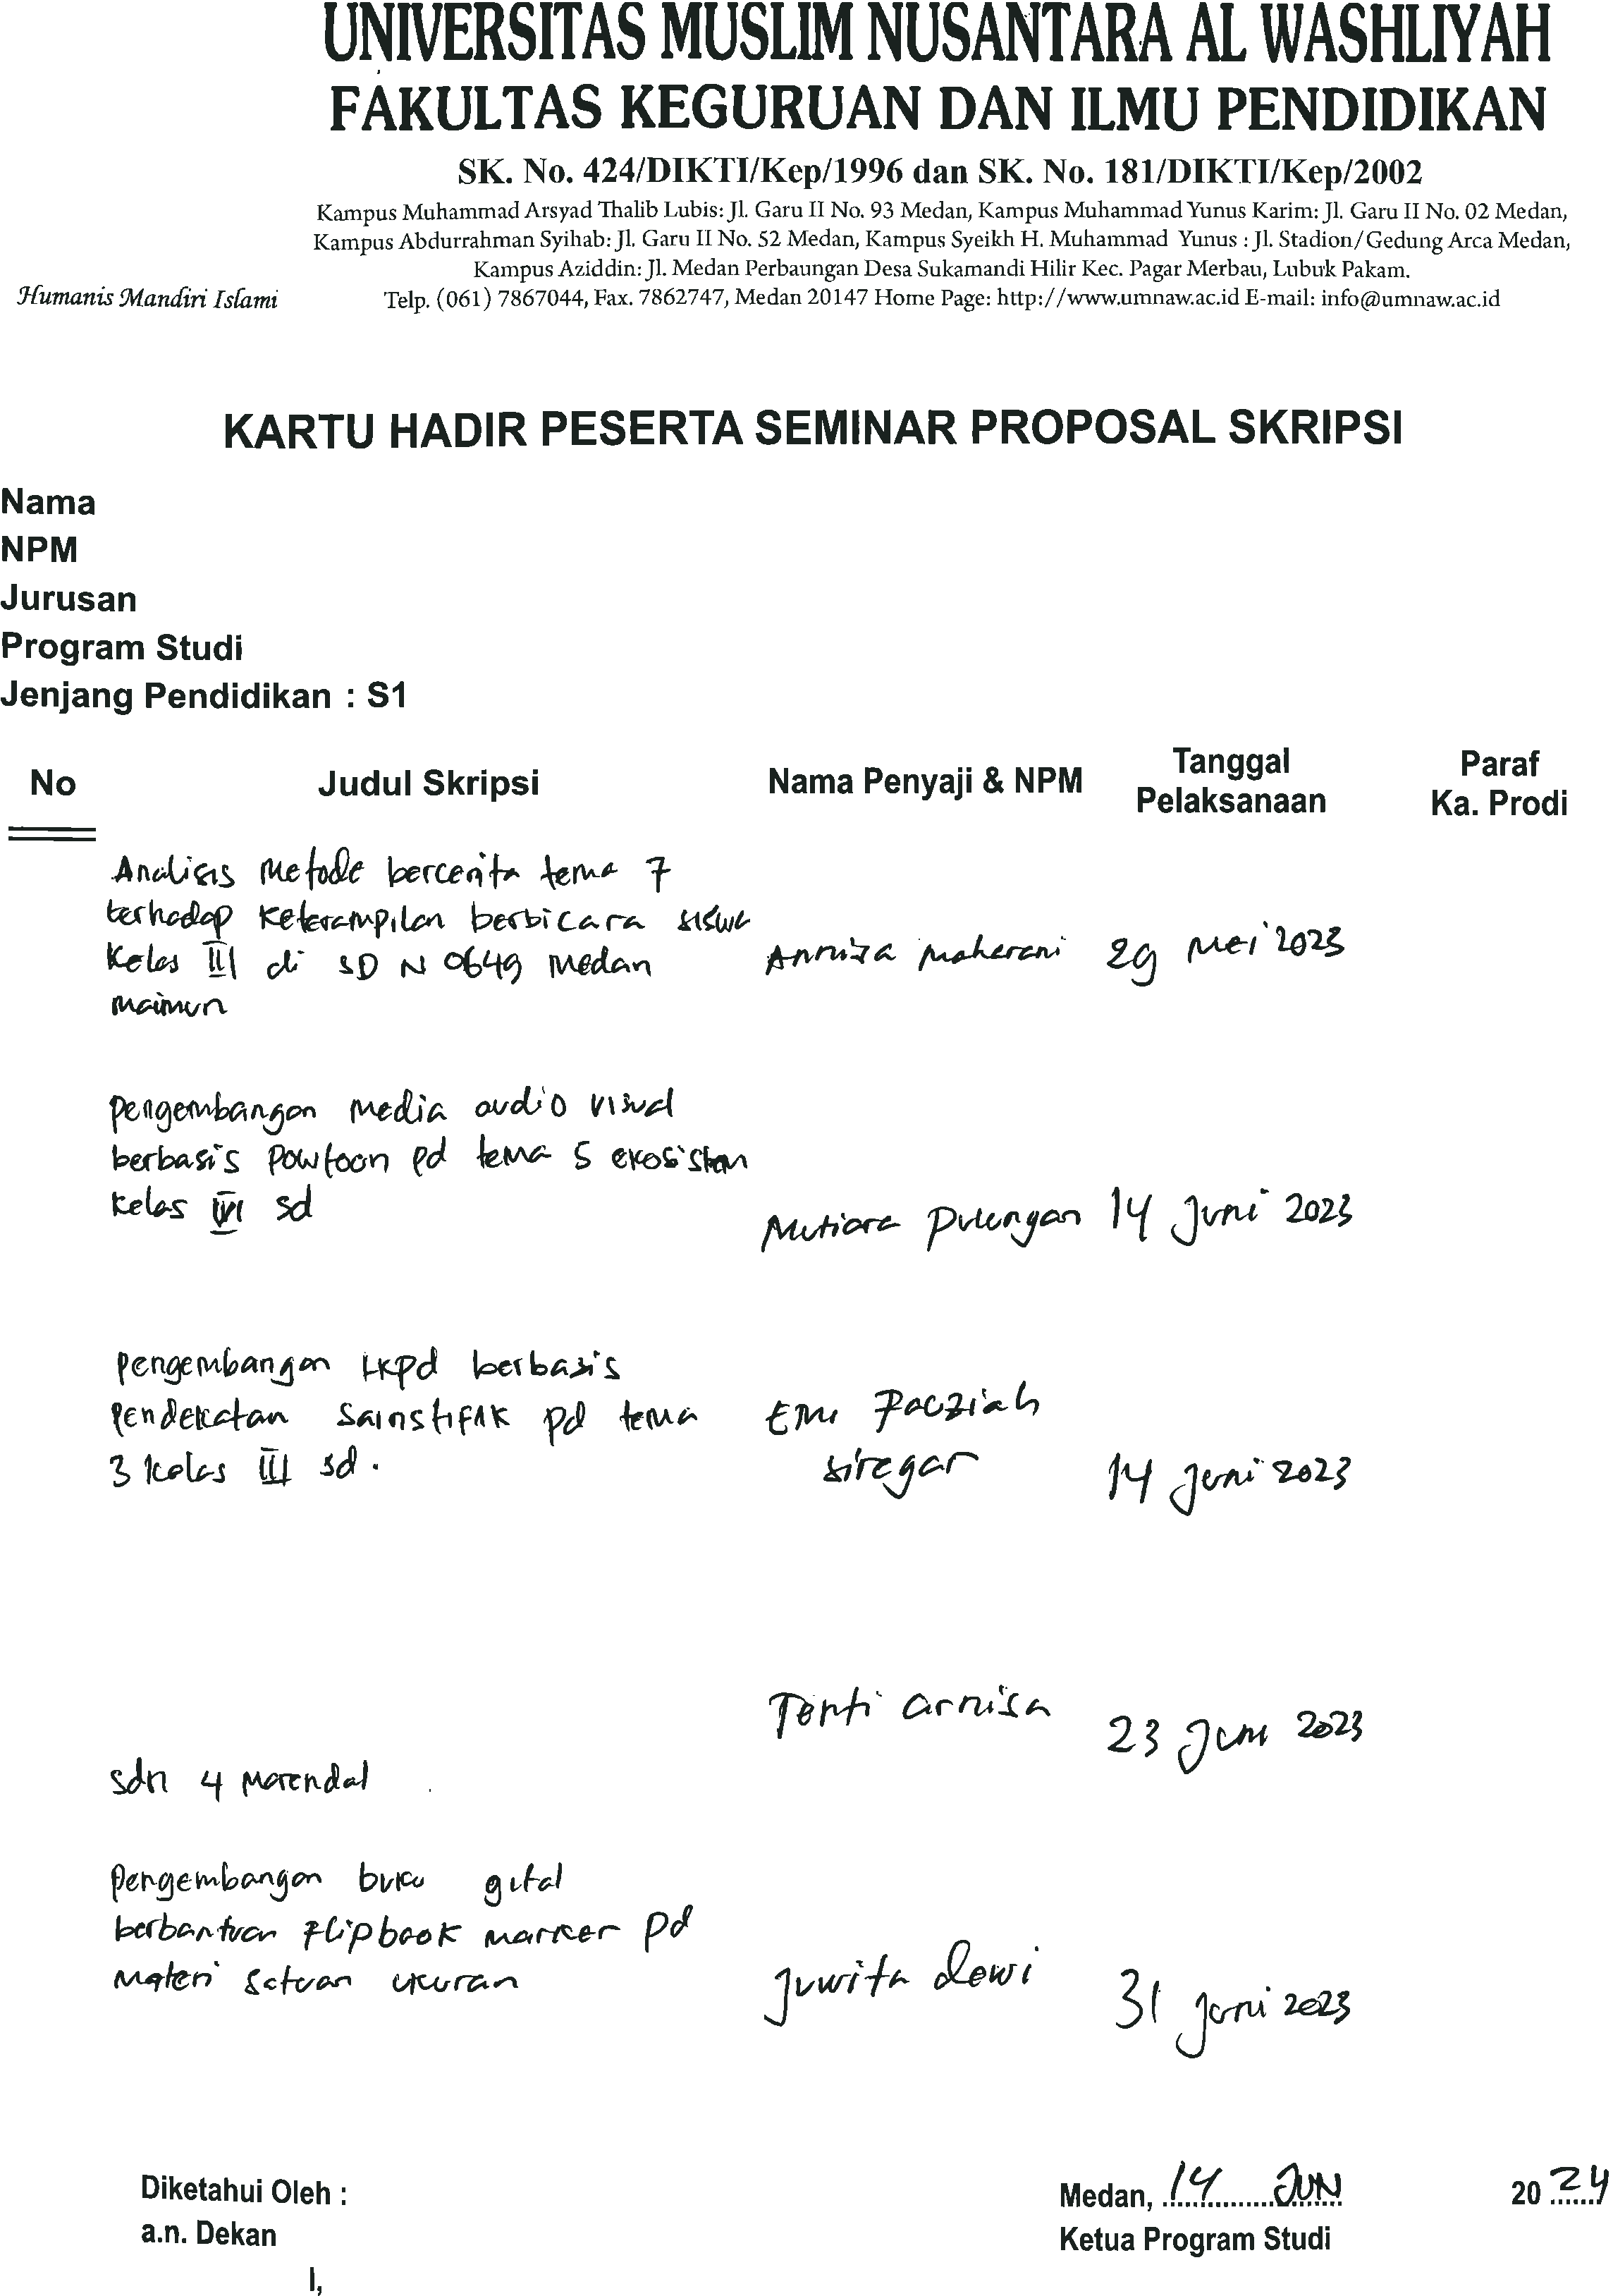 UNIVERSITAS MUSLIM NUSANTARA AL WASHLIYAH
FAKULTAS KEGURUAN DAN ILMU PENDIDIKAN
SK. No. 424/DIKTI/Kep/1996 dan SK. No. 181/DIKTI/Kep/2002
Kampus Muhammad Arsyad Thalib Lubis: Jl. Garu II No. 93 Medan, Kampus Muhammad Yunus Karim: Jl. Garu II No. 02 Medan,
Kampus Abdurrahman Syihab: Jl. Garu II No. 52 Medan, Kampus Syeikh H. Muhammad Yunus : Jl. Stadion/Gedung Arca Medan,
Kampus Aziddin: Jl. Medan Perbaungan Desa Sukamandi Hilir Kec. Pagar Merbau, Lubuk Pakam.
Humanis Mandiri Islami
Telp. (061) 7867044, Fax. 7862747, Medan 20147 Home Page: http://www.umnaw.ac.id E-mail: info@umnaw.ac.id
KARTU HADIR PESERTA SEMINAR PROPOSAL SKRIPSI
Nama
NPM
Jurusan
Program Studi
Jenjang Pendidikan : S1
No Judul Skripsi Nama Penyaji & NPM Tanggal Pelaksanaan Paraf Ka. Prodi
Analisis Metode bercerita tema 7
terhadap keterampilan berbicara siswa
Kelas III di SD N 0649 Medan
maimun
Annisa Maherani 29 Mei 2023
Pengembangan Media audio visual
berbasis Powtoon pd tema 5 ekosistem
kelas sd
Mutiara Pulungan 14 Juni 2023
Pengembangan LKpd berbasis
Pendekatan Sainstifik pd tema
3 kelas III sd.
Pauziah
siregar
14 Juni 2023
Tenti arnisa
23 Juni 2023
sdn 4 Marendal
Pengembangan buku gital
berbantuan Flipbook marker pd
Materi Satuan ukuran
Juwita dewi
31 Juni 2023
Diketahui Oleh :
a.n. Dekan
I,
Medan, 14 JUN 2024
Ketua Program Studi